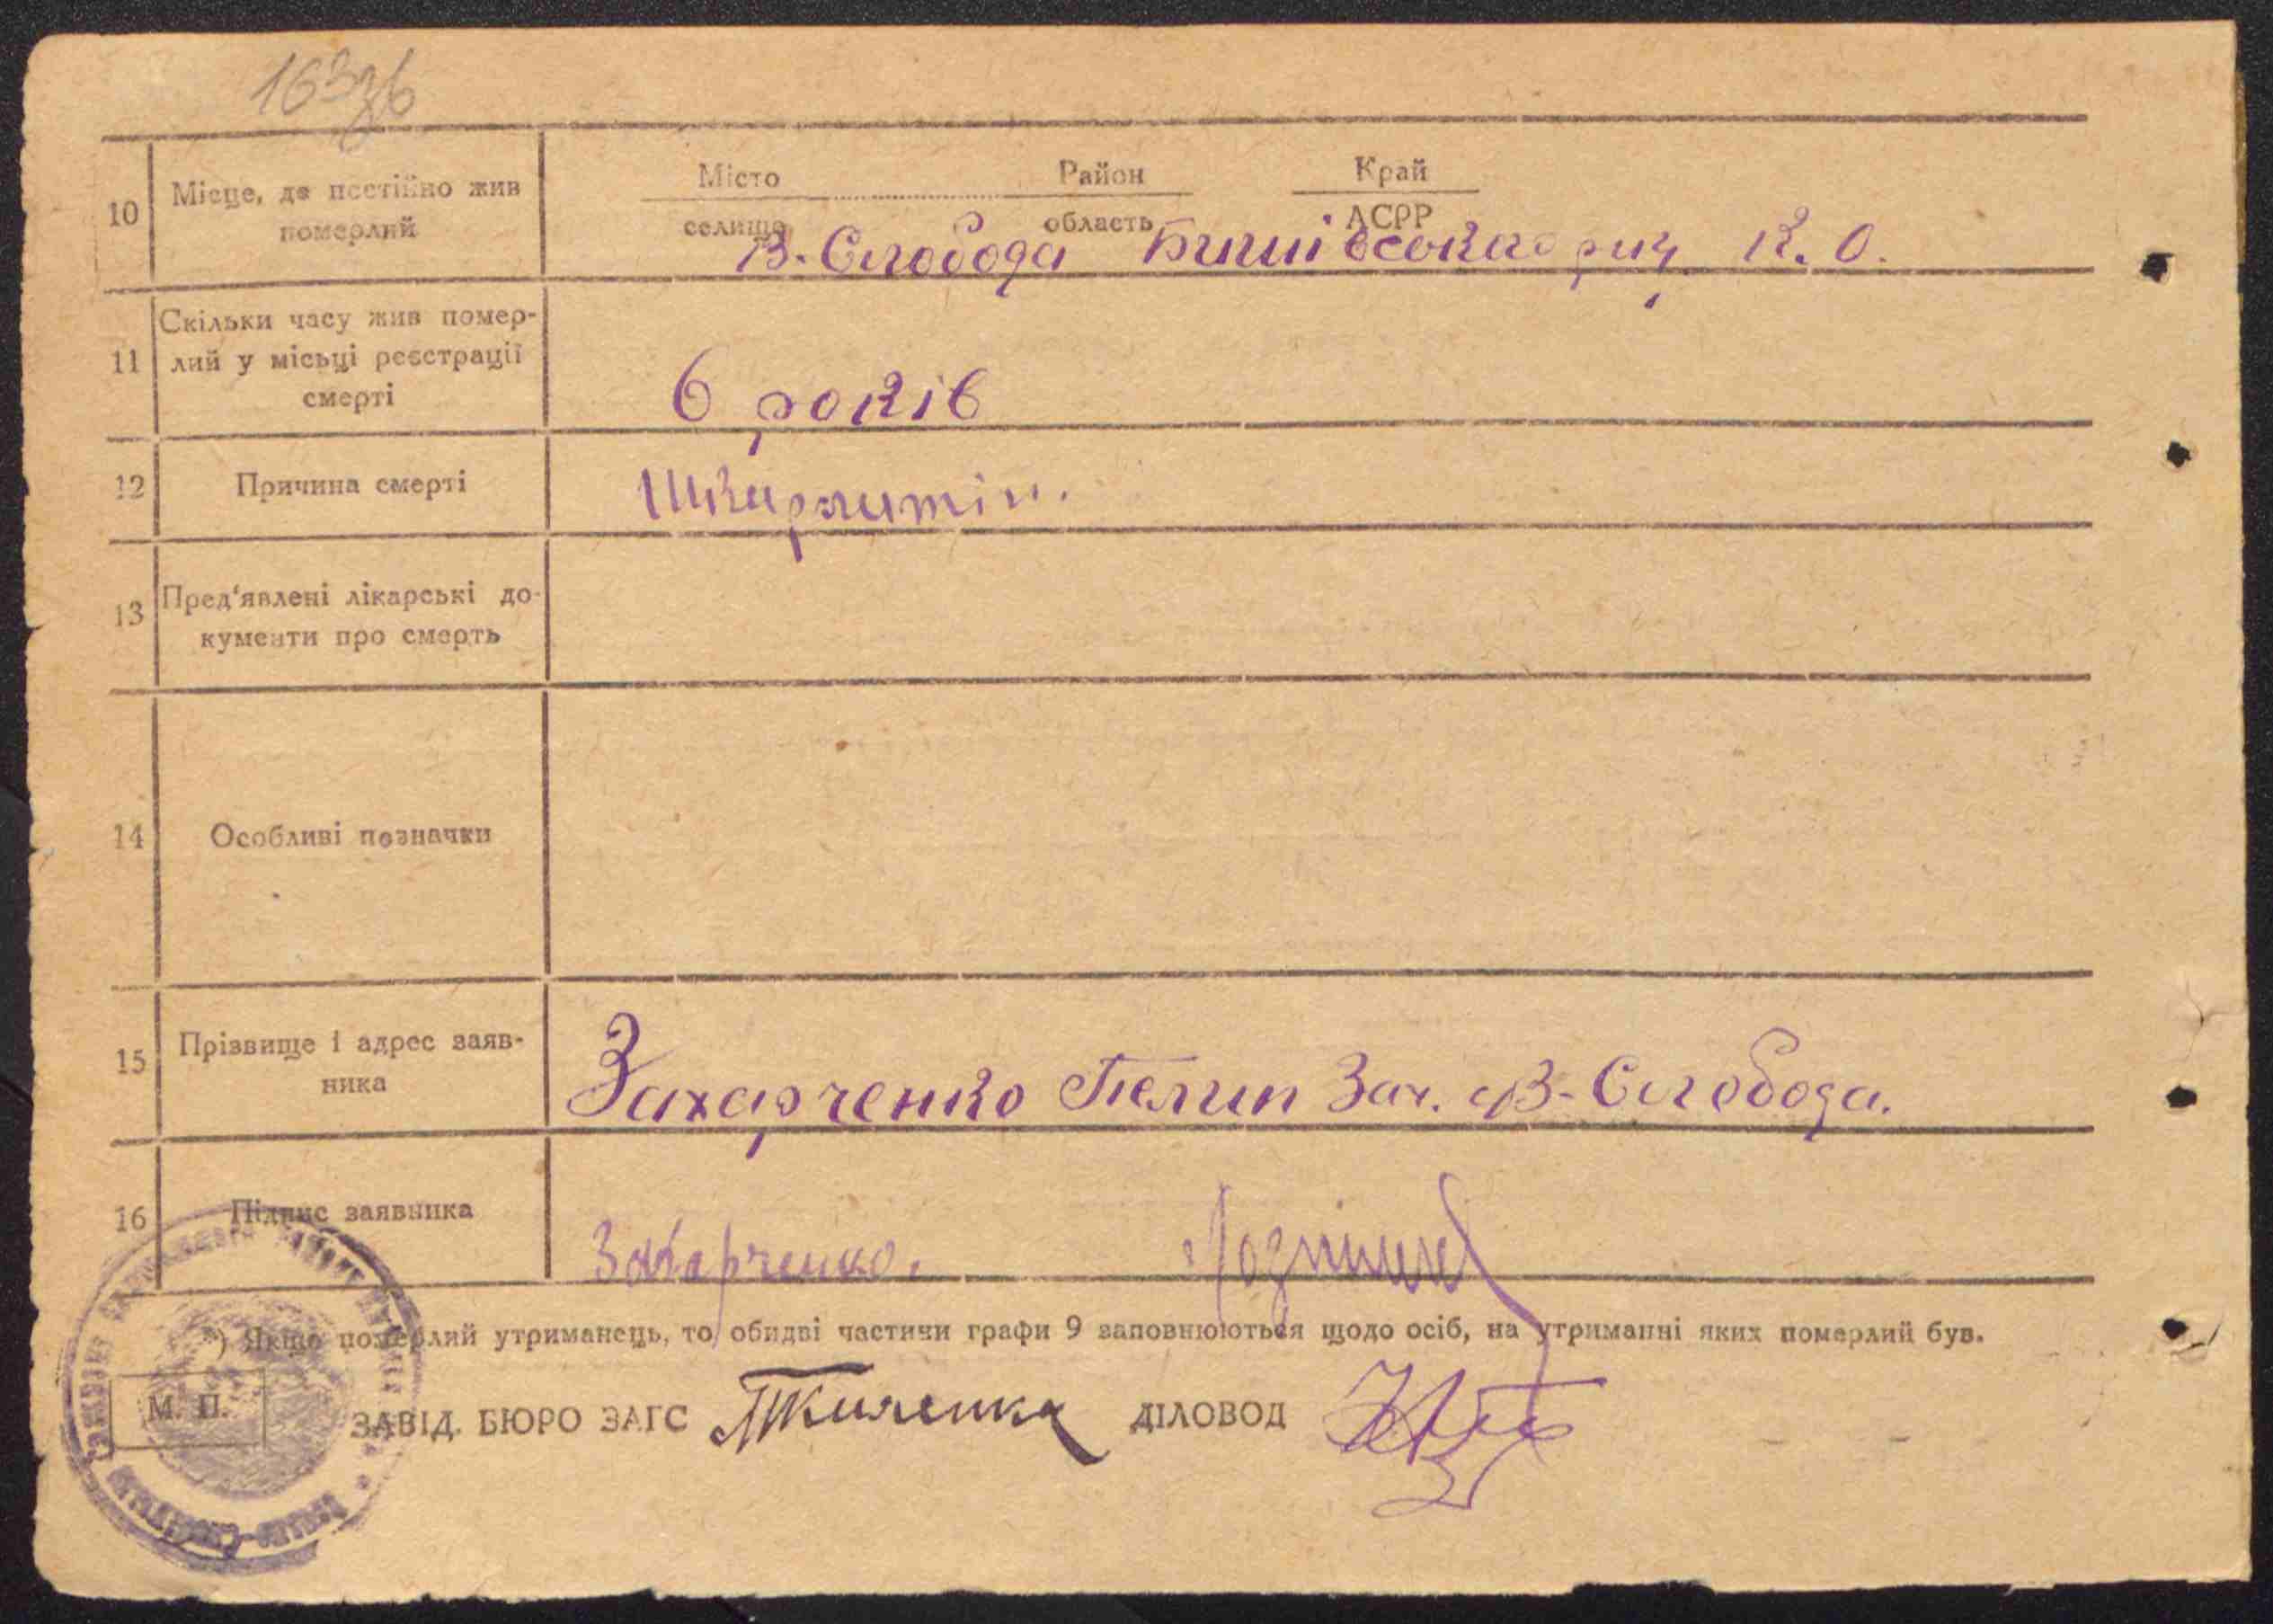 163зв
10 Місце, де постійно жив Місто Район Край
померлий селище область АСРР
В. Слобода Бишівського р-ну К. О.
Скільки часу жив помер-
11 лий у місьці реєстрації
смерті 6 років
12 Причина смерті Шкарлатін.
13 Пред'явлені лікарські до-
кументи про смерть
14 Особливі позначки
15 Прізвище і адрес заяв-
ника Захарченко Пелип Зах. В-Слобода.
16 Підпис заявника Захарченко.
*) Якщо померлий утриманець, то обидві частини графи 9 заповнюються щодо осіб, на утриманні яких померлий був.
М. П. ЗАВІД. БЮРО ЗАГС ДІЛОВОД